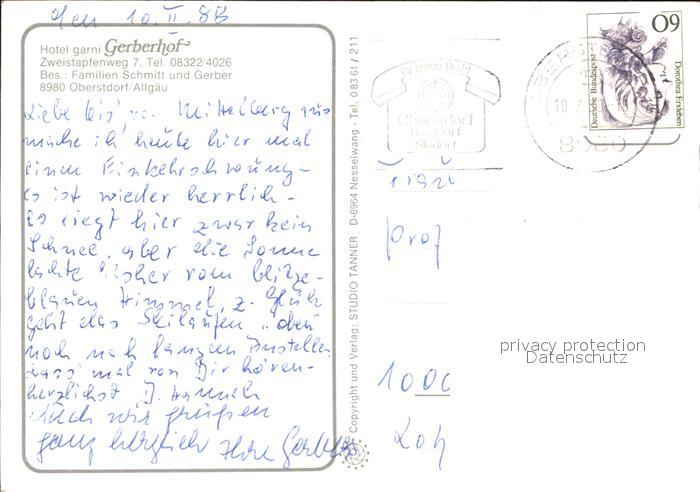 den 10.II.88
Hotel garni Gerberhof
Zweistapfenweg 7, Tel. 08322/4026
Bes.: Familien Schmitt und Gerber
8980 Oberstdorf/Allgäu
Liebe von Mittelberg aus
mache ich heute hier mal
einen Einkehrschwung –
es ist wieder herrlich –
Es liegt hier zwar kein
Schnee, aber die Sonne
lachte bisher vom blitze-
blauen Himmel, z. Glück
geht das Skilaufen "oben"
noch nach langem Anstellen
Lass mal von Dir hören –
herzlichst D. Hannah
Auch wir grüßen
ganz herzlich Gerber
Copyright und Verlag: STUDIO TANNER D-8964 Nesselwang · Tel. 0 83 61 / 211
Oberstdorf
Bergdorf
Skidorf
10.2.
8980
60
Deutsche Bundespost
Dorothea Erxleben
Frau
Prof
1000
privacy protection
Datenschutz